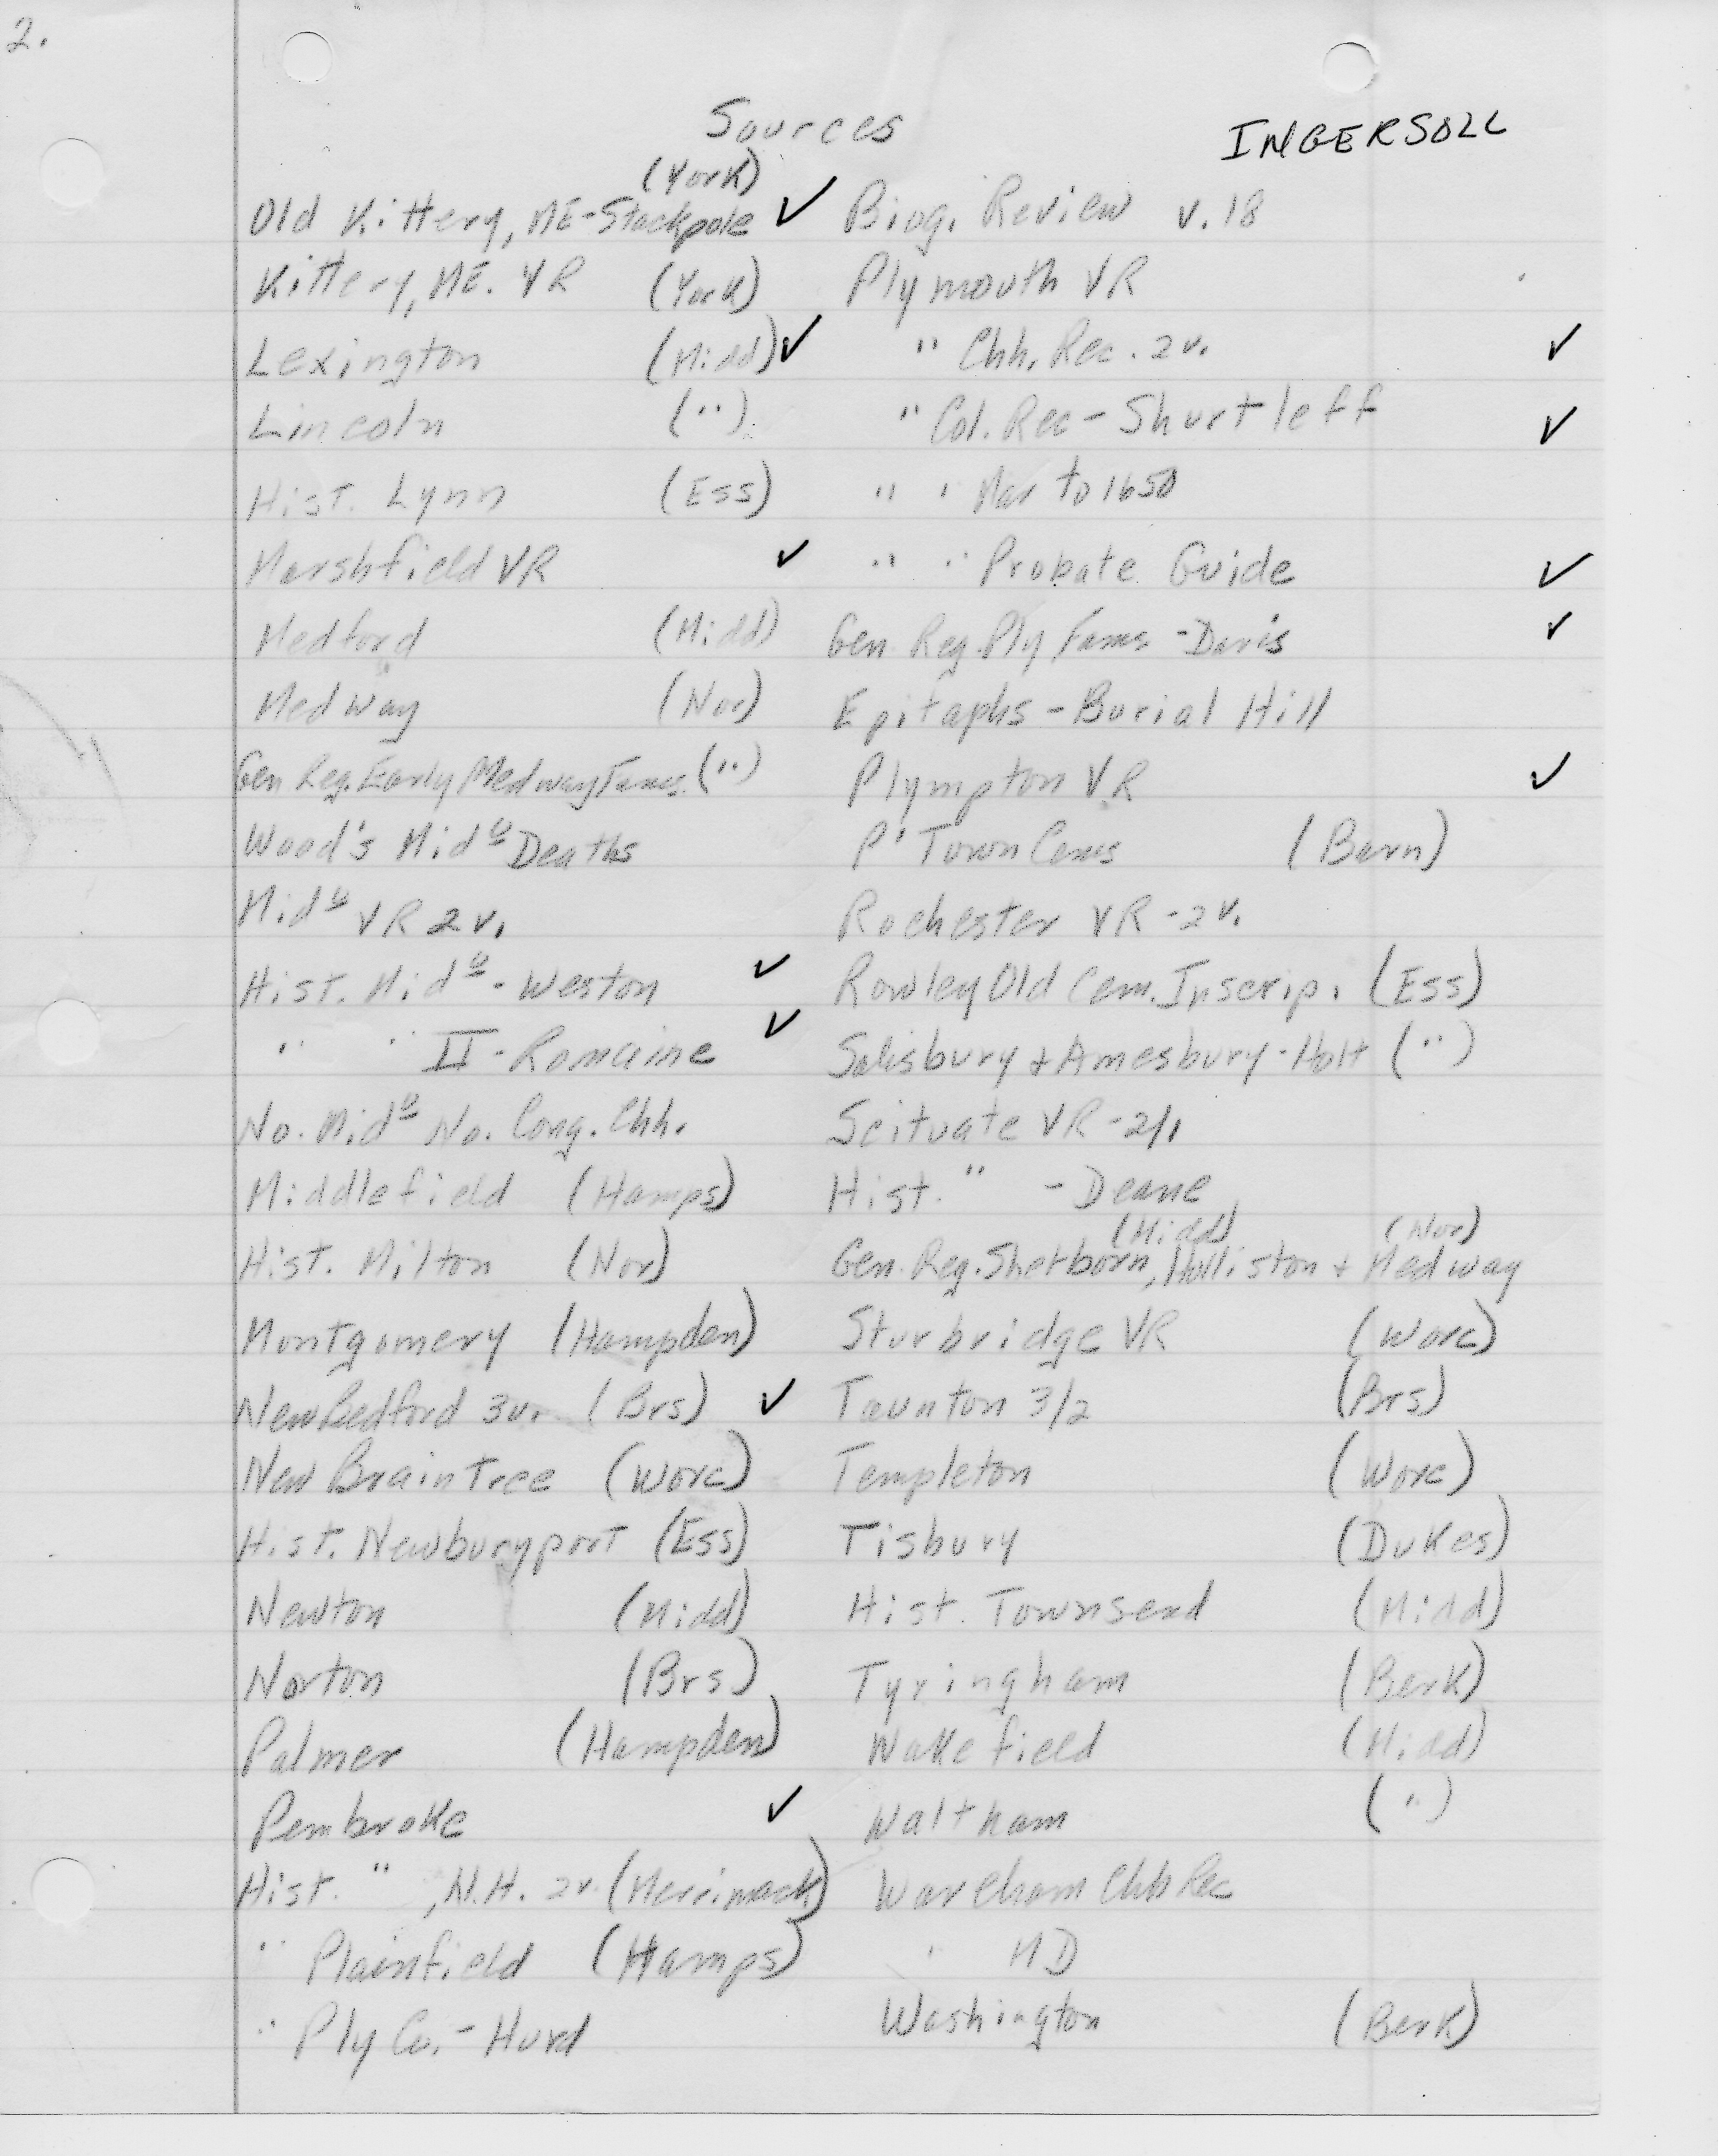 2.
Sources
INGERSOLL
(York)
Old Kittery, ME-Stackpole ✓
Kittery, ME. VR (York)
Lexington (Midd) ✓
Lincoln (")
Hist. Lynn (Ess)
Marshfield VR ✓
Medford (Midd)
Medway (Nor)
Gen Reg. Early Medway Fams. (")
Wood's Mid<sup>o</sup> Deaths
Mid<sup>o</sup> VR 2v.
Hist. Mid<sup>o</sup> - Weston ✓
" " II - Romaine ✓
No. Mid<sup>o</sup> No. Cong. Chh.
Middlefield (Hamps)
Hist. Milton (Nor)
Montgomery (Hampden)
New Bedford 3v. (Brs) ✓
New Braintree (Worc)
Hist. Newburyport (Ess)
Newton (Midd)
Norton (Brs)
Palmer (Hampden)
Pembroke ✓
Hist. " , N.H. 2v. (Merrimack)
" Plainfield (Hamps)
" Ply Co. - Hurd
Biog. Review v. 18
Plymouth VR
" Chh. Rec. 2v. ✓
" Col. Rec - Shurtleff ✓
" " Mar to 1650
" " Probate Guide ✓
Gen. Reg. Ply Fams - Davis ✓
Epitaphs - Burial Hill
Plympton VR ✓
P'Town Cems (Barn)
Rochester VR - 2v.
Rowley Old Cem. Inscrip. (Ess)
Salisbury & Amesbury - Hoyt (")
Scituate VR - 2/1
Hist. " - Deane
(Midd) (Nor)
Gen. Reg. Sherborn, Holliston & Medway
Sturbridge VR (Worc)
Taunton 3/2 (Brs)
Templeton (Worc)
Tisbury (Dukes)
Hist. Townsend (Midd)
Tyringham (Berk)
Wakefield (Midd)
Waltham (")
Wareham Chh Rec
" MD
Washington (Berk)